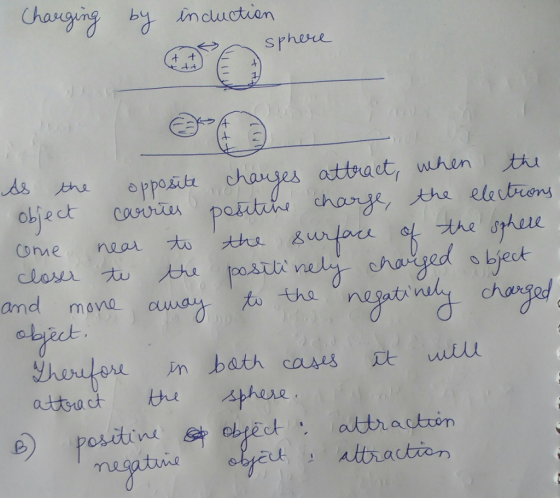 Charging by induction
sphere
As the opposite charges attract, when the
object carries positive charge, the electrons
come near to the surface of the sphere
closer to the positively charged object
and move away to the negatively charged
object.
Therefore in both cases it will
attract the sphere.
B) positive object : attraction
negative object : attraction